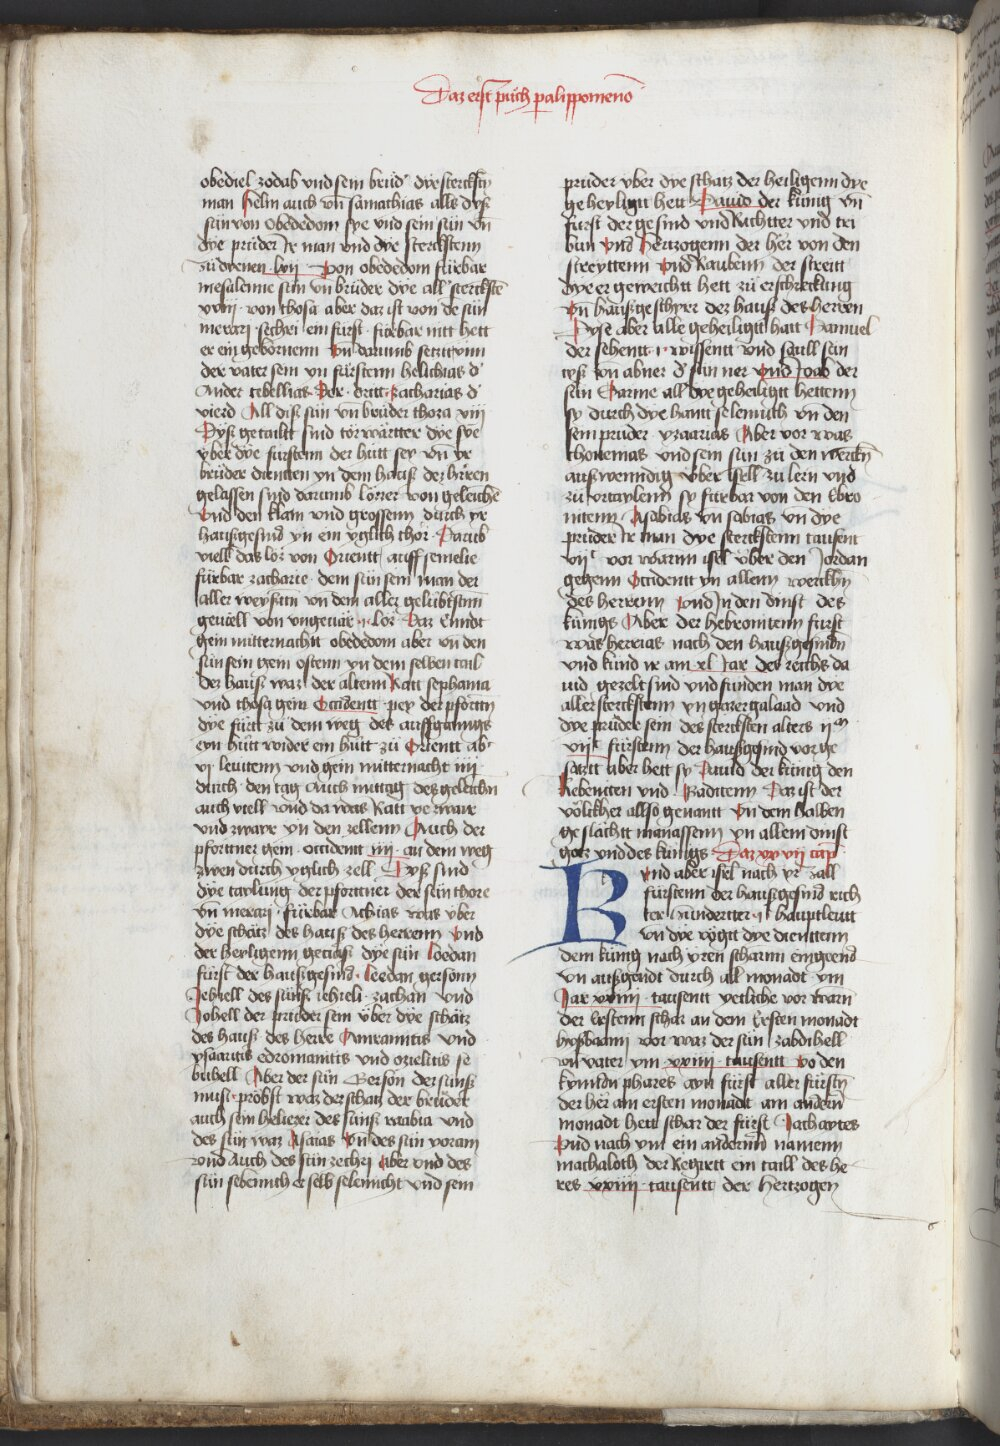 Daz erst puͦch paralippomenoͦ
obediel zodab vnd sein bruͤd' dye sterckstñ
man Helin auch vñ samathias alls dyß
sün von Obededom sye vnd sein sün vñ
dye prüder ir man vnd dye sterckstenn
zü dyenen · lxij · Von obededom fürbar
mesalemie sün vñ brüder dye all sterckstē
xviij · von thosa aber daz ist von dē sün
merari · sechri ein fürst · fürbar nitt hett
er ein gebornenn Vñ darumb setzt ynn
der vater sein vn fürstenn helchias d'
Ander tebellias Der · dritt · zacharias d'
vierd All diß sün vn brüder thora xiij
Dyß getailtt sind torwärtter dye sye
vber dye fürstenn der hütt sey vñ yr
brüder dientten yn dem hauß dez herren
gelassen sind darumb lößer von geleichē
Vnd den klain vnd grossenn durch yr
haußgesind yn ein yglich thor · Darūb
viell das loß von Orientt auff semelie
fürbar zacharie · dem sün sein man der
aller weysstn vn dem aller gelübtstnn
geuell von vngeuär · i · loß Daz Enndt
gein mitternachtt obededom aber vn den
sün sein gein ostenn yn dem selben tail
dez hauß waz · der altenn Ratt sephama
vnd thosa gein Occidentt · pey der pforttn
dye fürtt zu dem weg des auffganngs
eyn hütt wider ein hütt zü Orientt ab'
vj leuitenn vnd gein mitternacht iiij
durch den tag Auch mittag des geleichn
auch viell vnd da was Ratt ye zware
vnd zware yn den zellenn Auch der
pforttner gein · occidentt iiij · an dem weg
zwen durch yglich zell · Dyß sind
dye taylung der pforttner der sün thore
vn merari · fürbar Achias was vber
dye schätz des hauß des herrenn Vnd
der heyligenn geuäß dye sün Loedan
fürst der haußgesind · Leedan gersonn
Jehiell des sünß iehieli · zachan vnd
Johell der prüder sein vber dye schätz
des hauß des herrē Amramitis vnd
ysaaritis edromanitis vnd ozielitis se
bühell Aber der sün Gerson der sünß
musi · pröbst waz der schatz der brüder
auch sein heliezer des sünß raabia vnd
des sün waz Asaias Vn des sün yoram
vnd Auch des sün zechri Aber vnd des
sün selemith er selb selemicht vnd sein
prüder vber dye schatz der heiligenn dye
ge heyligtt hett Dauid der künig vñ
fürst der gesind vnd Richtter vnd tri
bun Vnd Hertzogenn der her von den
streyttenn Vnd Raubenn der streitt
dye er geweichtt hett zü erschreckung
Vn haußgeschyrr dez hauß des herren
Dyse aber alle geheiligtt hatt Samuel
der sehentt · i · wissentt vnd saull sün
cyß vn abner d' sün ner Vnd Joab der
sün Saruie all dye geheiligtt hettenn
sy durch dye hantt selemith vn den
sein prüder · yzaarias Aber vor was
chonemas vnd sein sün zü den werckn̄
außwenndig vber isell zu lern vnd
zü vrtaylenn sy fürbar von den Ebro
nitenn Asabias vn sabias vn dye
prüder ir man dye sterckstenn tausent
vijc vor warnn isel vber den Jordan
gegenn Occidentt yn allenn werckn̄
des herrenn Vnd Jn den dinst des
künigs Aber der hebronitenn fürst
was herrias nach den haußgesindn
vnd künd ir am xl Jar des reichs da
uid gezelt sind vnd funden man dye
allersterckstenn yn gazergalaad vnd
dye prüder sein des stercksten alters ijm
vijc fürstenn der haußgesind vor ge
saczt aber hett sy Dauid der künig den
Rebeniten vnd Gaditenn Daz ist der
völckher allso genantt Vn dem halben
geslächtt manassenn yn allem dinst
gotz vnd des künigs · Daz xxvij cap
Vnd aber isrl nach yr zall
fürstenn der haußgesind rich
ter hundertter · i · hauptleutt
vn dye vögtt dye dienttenn
dem künig nach yren scharnn eingeend
vn außgendt durch all monadt ym
Jar xxiiij · tausentt yetliche vor warn
der Erstenn schar an dem Ersten monadt
hyßbaam vor waz der sün zabdihell
vn vnter ym · xxiiij · tausentt Vo den
kynndn phares ayn fürst aller fürstn
der her am ersten monadt am andern
monadt hett schar der fürst Dachaytes
Vnd nach ym ein anderm namenn
machaloth der Regiertt ein taill des he
res xxiiij · tausentt der hertzogen